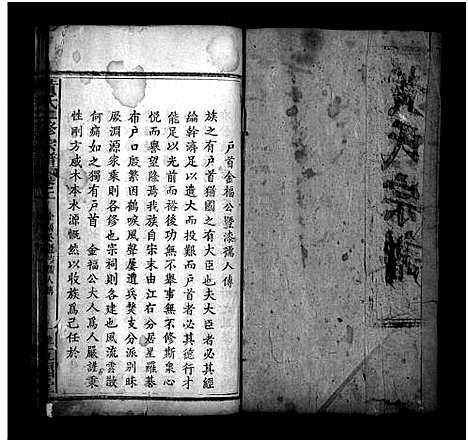 氏宗譜
戶首金福公暨漆孺人傳
族之有戶首猶國之有大臣也夫大臣者必其經
綸幹濟足以大而投艱而戶首者必其德行才
能足以光前而裕後然不舉事無不修斯衆心
悅而譽望隆焉我族自宋末由江右分居星羅棊
布戶口蕃衍因鶴唳風聲屢遭兵燹支分派别昧
厥淵源家乘則各修也宗祠則各建也風流雲散
何痛如之獨有戶首 金福公大人爲人嚴謹秉
性剛方感木本水源慨然以收族爲己任於